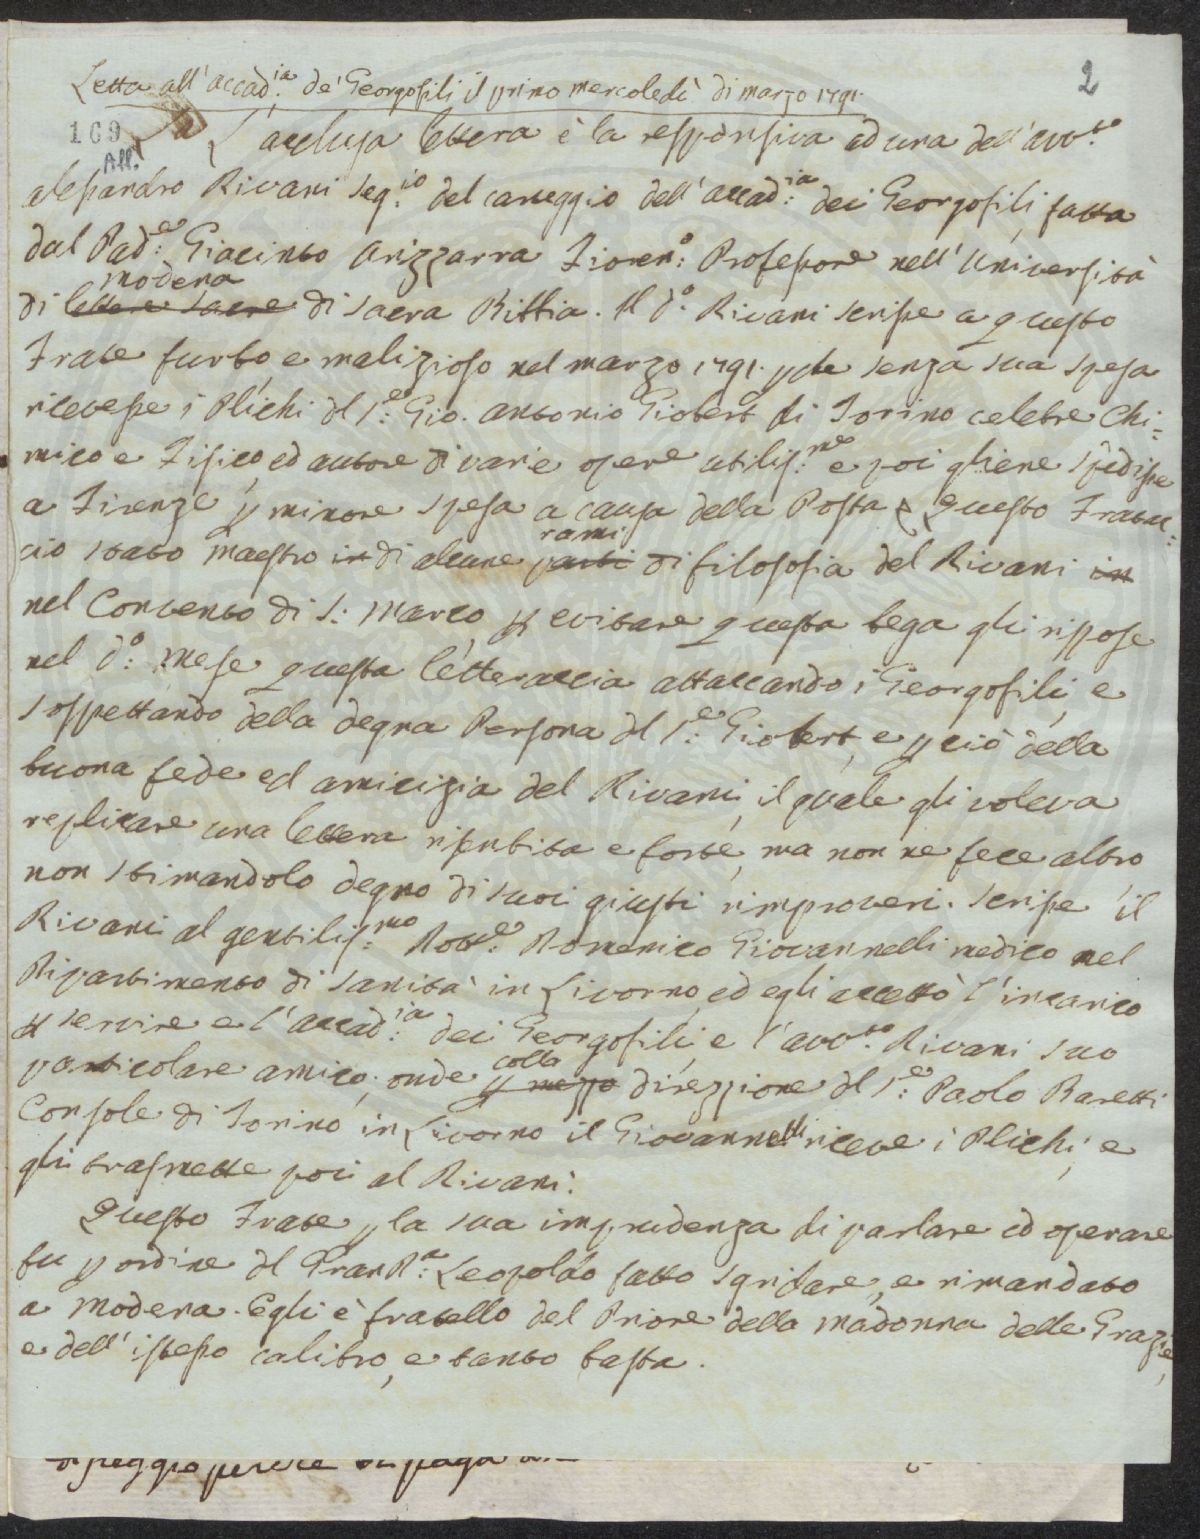 2
Letta all'accad.ia de' Georgofili il primo mercoledì di marzo 1791.
169
All.
L'acclusa lettera è la responsiva ad una dell'avv.to
Alessandro Rivani Seg.io del carteggio dell'accad.ia dei Georgofili, fatta
dal Pad.e Giacinto Fioren.o Professore nell'Università
di lettere sacre modena di sacra Bibbia. Il d.o Rivani scrisse a questo
Frate furbo e malizioso nel marzo 1791. pche senza sua spesa
ricevesse i Plichi dl S.e Gio. Antonio Giobert di Torino celebre Chi=
mico e Fisico, ed autore di varie opere utiliss.me e poi gliene spedisse
a Firenze p minore spesa a causa della Posta. Questo Fratac=
cio stato maestro in di alcune parti rami di filosofia del Rivani in
nel Convento di S. Marco, p evitare questa bega gli rispose
nel d.o mese questa letteraccia attaccando i Georgofili, e
sospettando della degna Persona dl S.e Giobert, e pciò della
buona fede ed amicizia del Rivani, il quale gli voleva
replicare una lettera risentita e forte, ma non ne fece altro
non stimandolo degno di suoi giusti rimproveri. Scrisse il
Rivani al gentiliss.mo Dott.e Domenico Giovannelli medico nel
Dipartimento di sanità in Livorno, ed egli accettò l'incarico
p servire e l'accad.ia dei Georgofili, e l'avv.to Rivani suo
particolare amico, onde p mezzo colla direzzione dl S.e Paolo Baretti
Console di Torino in Livorno il Giovannelli riceve i Plichi, e
gli trasmette poi al Rivani.
Questo Frate p la sua imprudenza di parlare ed operare
fu p ordine dl Gran D.a Leopoldo fatto sgridare, e rimandato
a Modena. Egli è fratello del Priore della Madonna delle Grazie,
e dell'istesso calibro, e tanto basta.